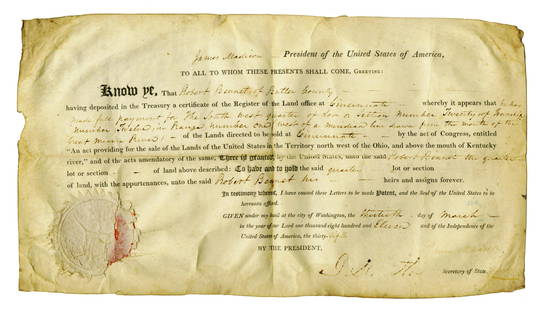 James Madison President of the United States of America,
TO ALL TO WHOM THESE PRESENTS SHALL COME, GREETING:
Know ye, That Robert Bennet of Butler County
having deposited in the Treasury a certificate of the Register of the Land office at Cincinnati whereby it appears that he has
made full payment for the South west quarter of Lot or section Number Twenty of Township
Number Twelve in Range Number one West of a meridian line drawn from the mouth of the
Great Miami River of the Lands directed to be sold at Cincinnati by the act of Congress, entitled
"An act providing for the sale of the Lands of the United States in the Territory north west of the Ohio, and above the mouth of Kentucky
river," and of the acts amendatory of the same, There is granted, by the United States, unto the said Robert Bennet the quarter
lot or section of land above described: To have and to hold the said quarter lot or section
of land, with the appurtenances, unto the said Robert Bennet his heirs and assigns forever.
In testimony whereof, I have caused these Letters to be made Patent, and the Seal of the United States to be
hereunto affixed.
GIVEN under my hand at the city of Washington, the thirtieth day of March
in the year of our Lord one thousand eight hundred and Eleven and of the Independence of the
United States of America, the thirty-fifth
BY THE PRESIDENT,
Secretary of State.